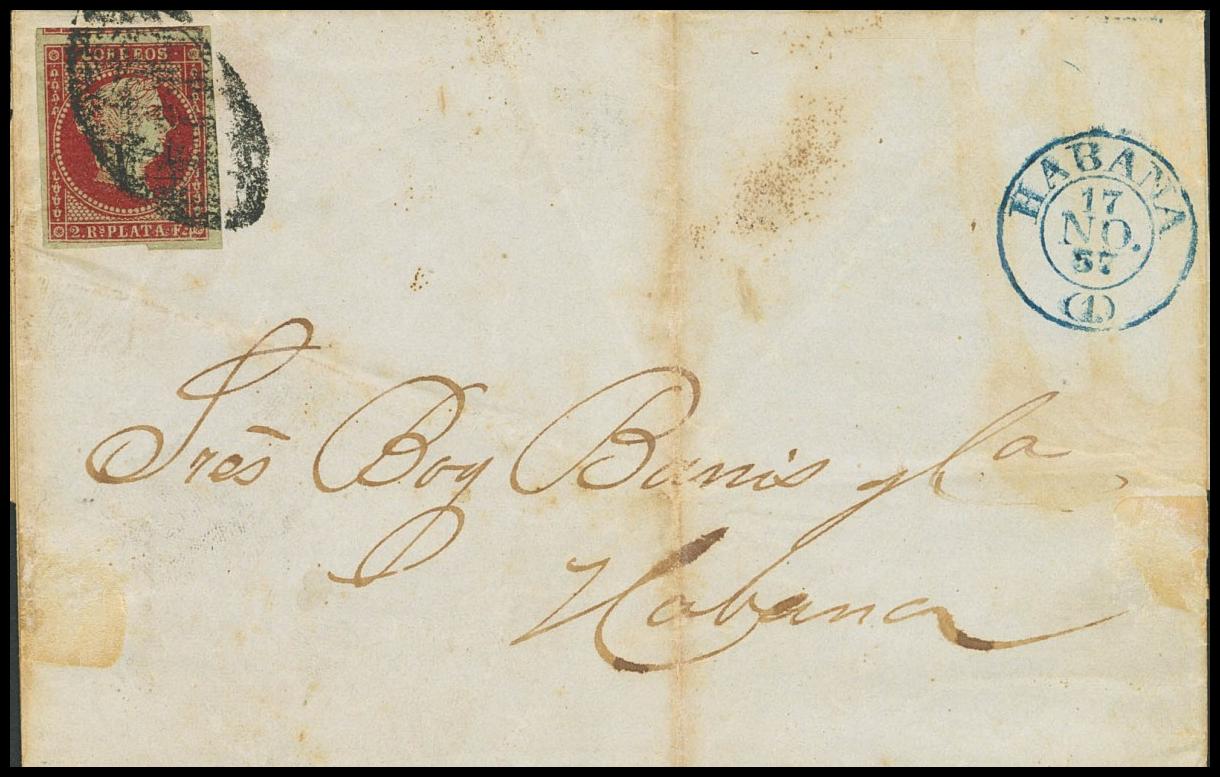 CORREOS
2. Rs. PLATA. F.
HABANA
17
NO.
57
(1.)
Sres Boy Banis y Ca
Habana